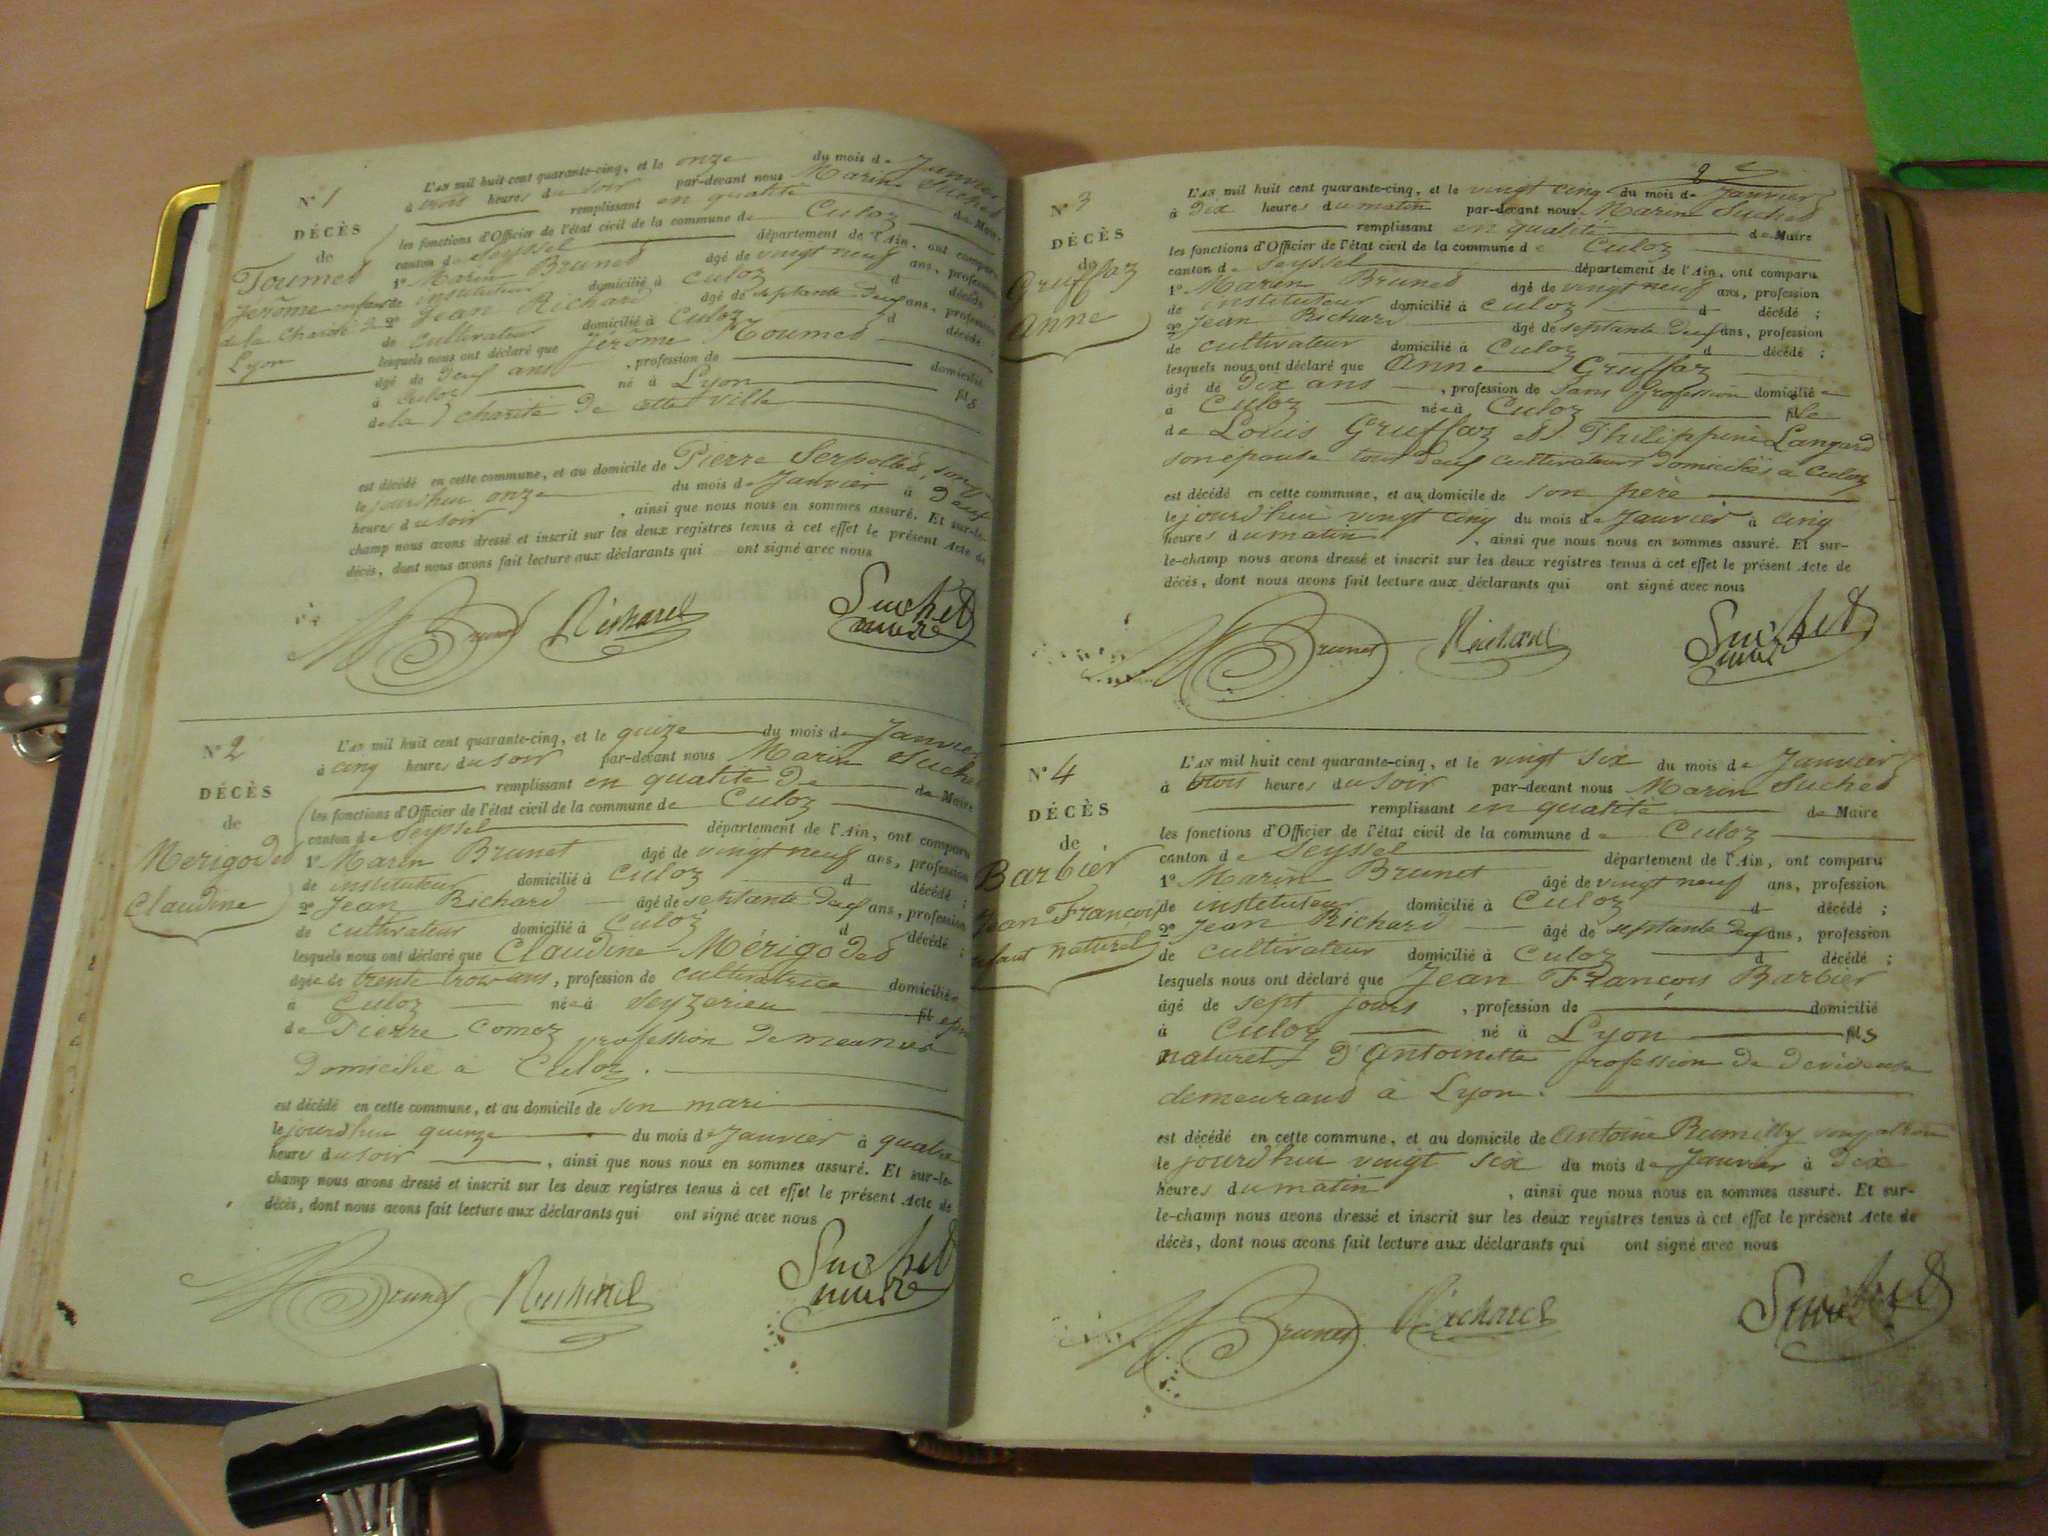 N° 1
DÉCÈS
de
Toumet
Jérôme enfant
de la Charité de
Lyon
L'AN mil huit cent quarante-cinq, et le onze du mois de Janvier
à trois heures du soir par-devant nous Marin Suchet
remplissant en qualité de Maire
les fonctions d'Officier de l'état civil de la commune de Culoz
canton de Seyssel département de l'Ain, ont comparu
1° Marin Brunet âgé de vingt neuf ans, profession
de instituteur domicilié à Culoz d décédé ;
2° Jean Richard âgé de septante deux ans, profession
de cultivateur domicilié à Culoz d décédé ;
lesquels nous ont déclaré que Jérôme Toumet
âgé de deux ans , profession de domicilié
à Culoz né à Lyon fils
de la charité de cette ville
est décédé en cette commune, et au domicile de Pierre Serpollet
le jourdhui onze du mois de Janvier à deux
heures du soir , ainsi que nous nous en sommes assuré. Et sur-le-
champ nous avons dressé et inscrit sur les deux registres tenus à cet effet le présent Acte de
décès, dont nous avons fait lecture aux déclarants qui ont signé avec nous
M Brunet Richard Suchet
maire
N° 2
DÉCÈS
de
Merigodet
Claudine
L'AN mil huit cent quarante-cinq, et le quize du mois de Janvier
à cinq heures du soir par-devant nous Marin Suchet
remplissant en qualité de de Maire
les fonctions d'Officier de l'état civil de la commune de Culoz
canton de Seyssel département de l'Ain, ont comparu
1° Marin Brunet âgé de vingt neuf ans, profession
de instituteur domicilié à Culoz d décédé ;
2° Jean Richard âgé de septante deux ans, profession
de cultivateur domicilié à Culoz d décédé ;
lesquels nous ont déclaré que Claudine Mérigodet
âgée de trente trois ans, profession de cultivatrice domiciliée
à Culoz née à Seyzerieu fil
de Pierre Comoz profession de meunier
domicilié à Culoz.
est décédé en cette commune, et au domicile de son mari
le jourdhui quinze du mois de Janvier à quatre
heures du soir , ainsi que nous nous en sommes assuré. Et sur-le-
champ nous avons dressé et inscrit sur les deux registres tenus à cet effet le présent Acte de
décès, dont nous avons fait lecture aux déclarants qui ont signé avec nous
M Brunet Richard Suchet
maire
2
N° 3
DÉCÈS
de
Gruffaz
Anne
L'AN mil huit cent quarante-cinq, et le vingt cinq du mois de Janvier
à dix heures du matin par-devant nous Marin Suchet
remplissant en qualité de Maire
les fonctions d'Officier de l'état civil de la commune de Culoz
canton de Seyssel département de l'Ain, ont comparu
1° Marin Brunet âgé de vingt neuf ans, profession
de instituteur domicilié à Culoz d décédé ;
2° Jean Richard âgé de septante deux ans, profession
de cultivateur domicilié à Culoz d décédé ;
lesquels nous ont déclaré que Anne Gruffaz
âgé de dix ans , profession de sans profession domiciliée
à Culoz née à Culoz fille
de Louis Gruffaz et Philippine Langard
son épouse tous deux cultivateurs domiciliés à Culoz
est décédé en cette commune, et au domicile de son père
le jourdhui vingt cinq du mois de Janvier à cinq
heures du matin , ainsi que nous nous en sommes assuré. Et sur-
le-champ nous avons dressé et inscrit sur les deux registres tenus à cet effet le présent Acte de
décès, dont nous avons fait lecture aux déclarants qui ont signé avec nous
M Brunet Richard Suchet
maire
N° 4
DÉCÈS
de
Barbier
Jean François
enfant naturel
L'AN mil huit cent quarante-cinq, et le vingt six du mois de Janvier
à trois heures du soir par-devant nous Marin Suchet
remplissant en qualité de Maire
les fonctions d'Officier de l'état civil de la commune de Culoz
canton de Seyssel département de l'Ain, ont comparu
1° Marin Brunet âgé de vingt neuf ans, profession
de instituteur domicilié à Culoz d décédé ;
2° Jean Richard âgé de septante deux ans, profession
de cultivateur domicilié à Culoz d décédé ;
lesquels nous ont déclaré que Jean François Barbier
âgé de sept jours , profession de domicilié
à Culoz né à Lyon fils
naturel d'Antoinette profession de devideuse
demeurant à Lyon.
est décédé en cette commune, et au domicile de Antoine Rumilly
le jourdhui vingt six du mois de Janvier à dix
heures du matin , ainsi que nous nous en sommes assuré. Et sur-
le-champ nous avons dressé et inscrit sur les deux registres tenus à cet effet le présent Acte de
décès, dont nous avons fait lecture aux déclarants qui ont signé avec nous
M Brunet Richard Suchet